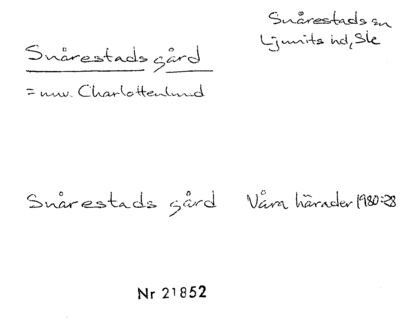 Snårestads sn
Ljunits hd, Sk
Snårestads gård
= nuv. Charlottenlund
Snårestads gård Våra härader 1980:28
Nr 21852